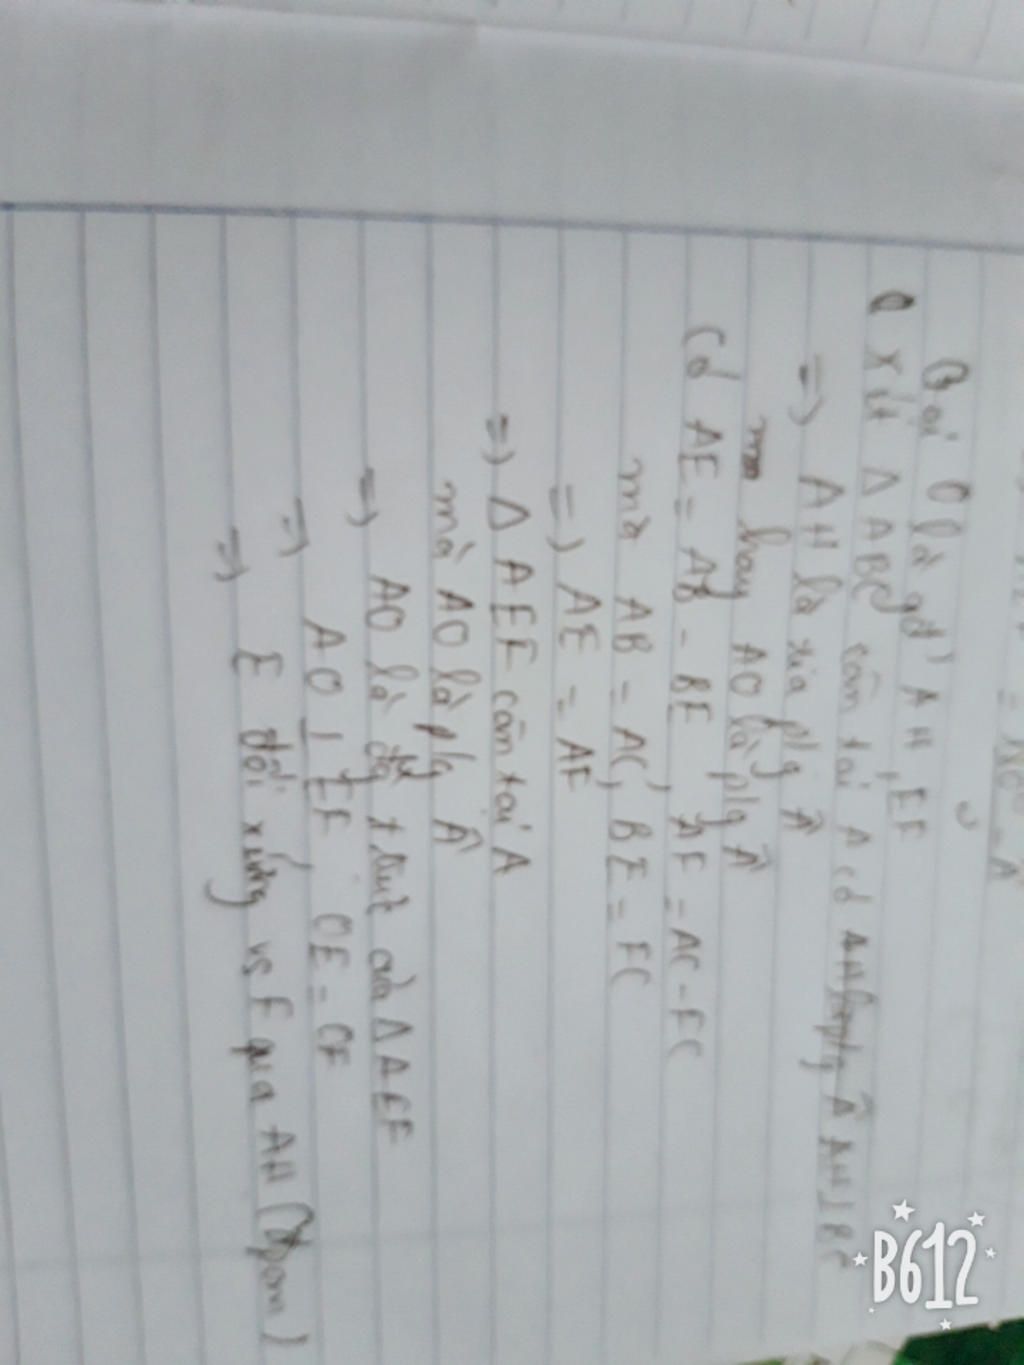 Gọi O là gđ' AH, EF
Xét Δ ABC cân tại A có AH ⊥ BC
=> AH là tia plg Â
hay AO là plg Â
Có AE = AB - BE, AF = AC - FC
mà AB = AC, BE = FC
=> AE = AF
=> Δ AEF cân tại A
mà AO là plg Â
=> AO là đg t trực của Δ AEF
=> AO ⊥ EF, OE = OF
=> E đối xứng vs F qua AH (đpcm)
B612